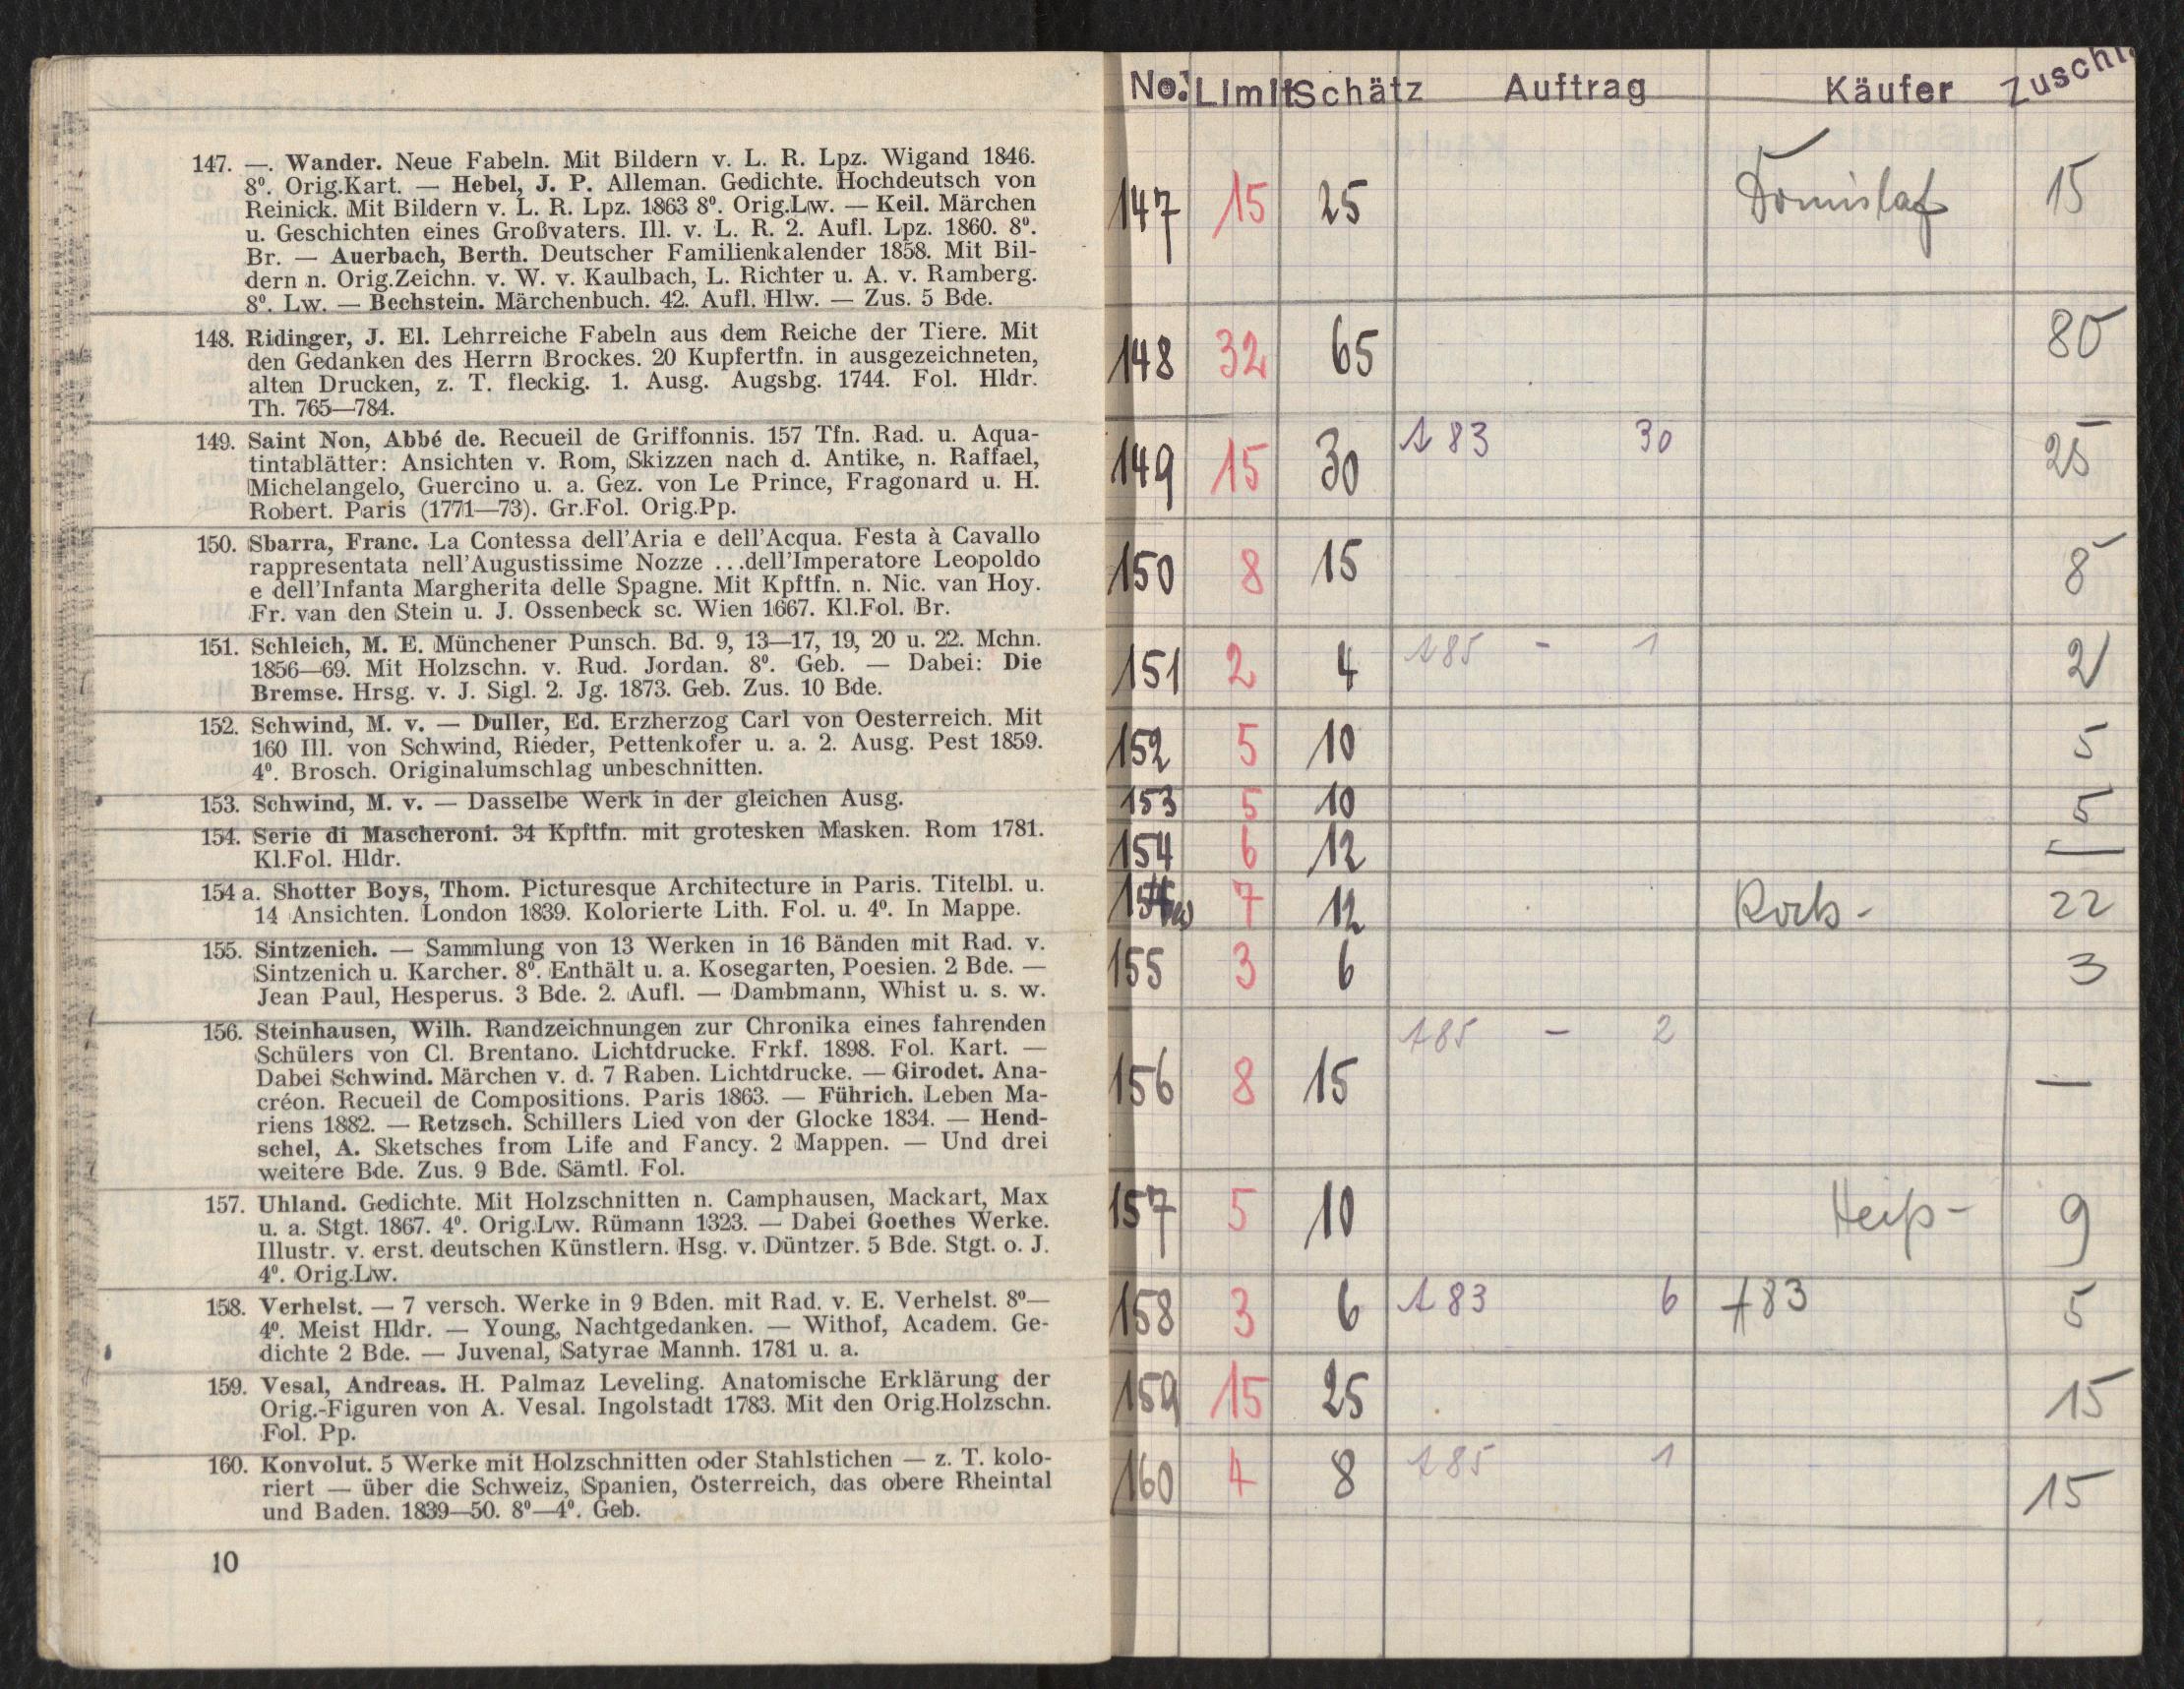 147. —. Wander. Neue Fabeln. Mit Bildern v. L. R. Lpz. Wigand 1846.
8⁰. Orig.Kart. — Hebel, J. P. Alleman. Gedichte. Hochdeutsch von
Reinick. Mit Bildern v. L. R. Lpz. 1863 8⁰. Orig.Lw. — Keil. Märchen
u. Geschichten eines Großvaters. Ill. v. L. R. 2. Aufl. Lpz. 1860. 8⁰.
Br. — Auerbach, Berth. Deutscher Familienkalender 1858. Mit Bil-
dern n. Orig.Zeichn. v. W. v. Kaulbach, L. Richter u. A. v. Ramberg.
8⁰. Lw. — Bechstein. Märchenbuch. 42. Aufl. Hlw. — Zus. 5 Bde.
148. Ridinger, J. El. Lehrreiche Fabeln aus dem Reiche der Tiere. Mit
den Gedanken des Herrn Brockes. 20 Kupfertfn. in ausgezeichneten,
alten Drucken, z. T. fleckig. 1. Ausg. Augsbg. 1744. Fol. Hldr.
Th. 765—784.
149. Saint Non, Abbé de. Recueil de Griffonnis. 157 Tfn. Rad. u. Aqua-
tintablätter: Ansichten v. Rom, Skizzen nach d. Antike, n. Raffael,
Michelangelo, Guercino u. a. Gez. von Le Prince, Fragonard u. H.
Robert. Paris (1771—73). Gr.Fol. Orig.Pp.
150. Sbarra, Franc. La Contessa dell'Aria e dell'Acqua. Festa à Cavallo
rappresentata nell'Augustissime Nozze ...dell'Imperatore Leopoldo
e dell'Infanta Margherita delle Spagne. Mit Kpftfn. n. Nic. van Hoy.
Fr. van den Stein u. J. Ossenbeck sc. Wien 1667. Kl.Fol. Br.
151. Schleich, M. E. Münchener Punsch. Bd. 9, 13—17, 19, 20 u. 22. Mchn.
1856—69. Mit Holzschn. v. Rud. Jordan. 8⁰. Geb. — Dabei: Die
Bremse. Hrsg. v. J. Sigl. 2. Jg. 1873. Geb. Zus. 10 Bde.
152. Schwind, M. v. — Duller, Ed. Erzherzog Carl von Oesterreich. Mit
160 Ill. von Schwind, Rieder, Pettenkofer u. a. 2. Ausg. Pest 1859.
4⁰. Brosch. Originalumschlag unbeschnitten.
153. Schwind, M. v. — Dasselbe Werk in der gleichen Ausg.
154. Serie di Mascheroni. 34 Kpftfn. mit grotesken Masken. Rom 1781.
Kl.Fol. Hldr.
154 a. Shotter Boys, Thom. Picturesque Architecture in Paris. Titelbl. u.
14 Ansichten. London 1839. Kolorierte Lith. Fol. u. 4⁰. In Mappe.
155. Sintzenich. — Sammlung von 13 Werken in 16 Bänden mit Rad. v.
Sintzenich u. Karcher. 8⁰. Enthält u. a. Kosegarten, Poesien. 2 Bde. —
Jean Paul, Hesperus. 3 Bde. 2. Aufl. — Dambmann, Whist u. s. w.
156. Steinhausen, Wilh. Randzeichnungen zur Chronika eines fahrenden
Schülers von Cl. Brentano. Lichtdrucke. Frkf. 1898. Fol. Kart. —
Dabei Schwind. Märchen v. d. 7 Raben. Lichtdrucke. — Girodet. Ana-
créon. Recueil de Compositions. Paris 1863. — Führich. Leben Ma-
riens 1882. — Retzsch. Schillers Lied von der Glocke 1834. — Hend-
schel, A. Sketsches from Life and Fancy. 2 Mappen. — Und drei
weitere Bde. Zus. 9 Bde. Sämtl. Fol.
157. Uhland. Gedichte. Mit Holzschnitten n. Camphausen, Mackart, Max
u. a. Stgt. 1867. 4⁰. Orig.Lw. Rümann 1323. — Dabei Goethes Werke.
Illustr. v. erst. deutschen Künstlern. Hsg. v. Düntzer. 5 Bde. Stgt. o. J.
4⁰. Orig.Lw.
158. Verhelst. — 7 versch. Werke in 9 Bden. mit Rad. v. E. Verhelst. 8⁰—
4⁰. Meist Hldr. — Young, Nachtgedanken. — Withof, Academ. Ge-
dichte 2 Bde. — Juvenal, Satyrae Mannh. 1781 u. a.
159. Vesal, Andreas. H. Palmaz Leveling. Anatomische Erklärung der
Orig.-Figuren von A. Vesal. Ingolstadt 1783. Mit den Orig.Holzschn.
Fol. Pp.
160. Konvolut. 5 Werke mit Holzschnitten oder Stahlstichen — z. T. kolo-
riert — über die Schweiz, Spanien, Österreich, das obere Rheintal
und Baden. 1839—50. 8⁰—4⁰. Geb.
10
No. Limit Schätz Auftrag Käufer Zuschl.
147 15 25 15
148 32 65 80
149 15 30 183 30 25
150 8 15 8
151 2 4 185 - 1 2
152 5 10 5
153 5 10 5
154 6 12 —
154a 7 12 22
155 3 6 3
156 8 15 185 - 2 —
157 5 10 Heiß - 9
158 3 6 183 6 183 5
159 15 25 15
160 4 8 185 1 15